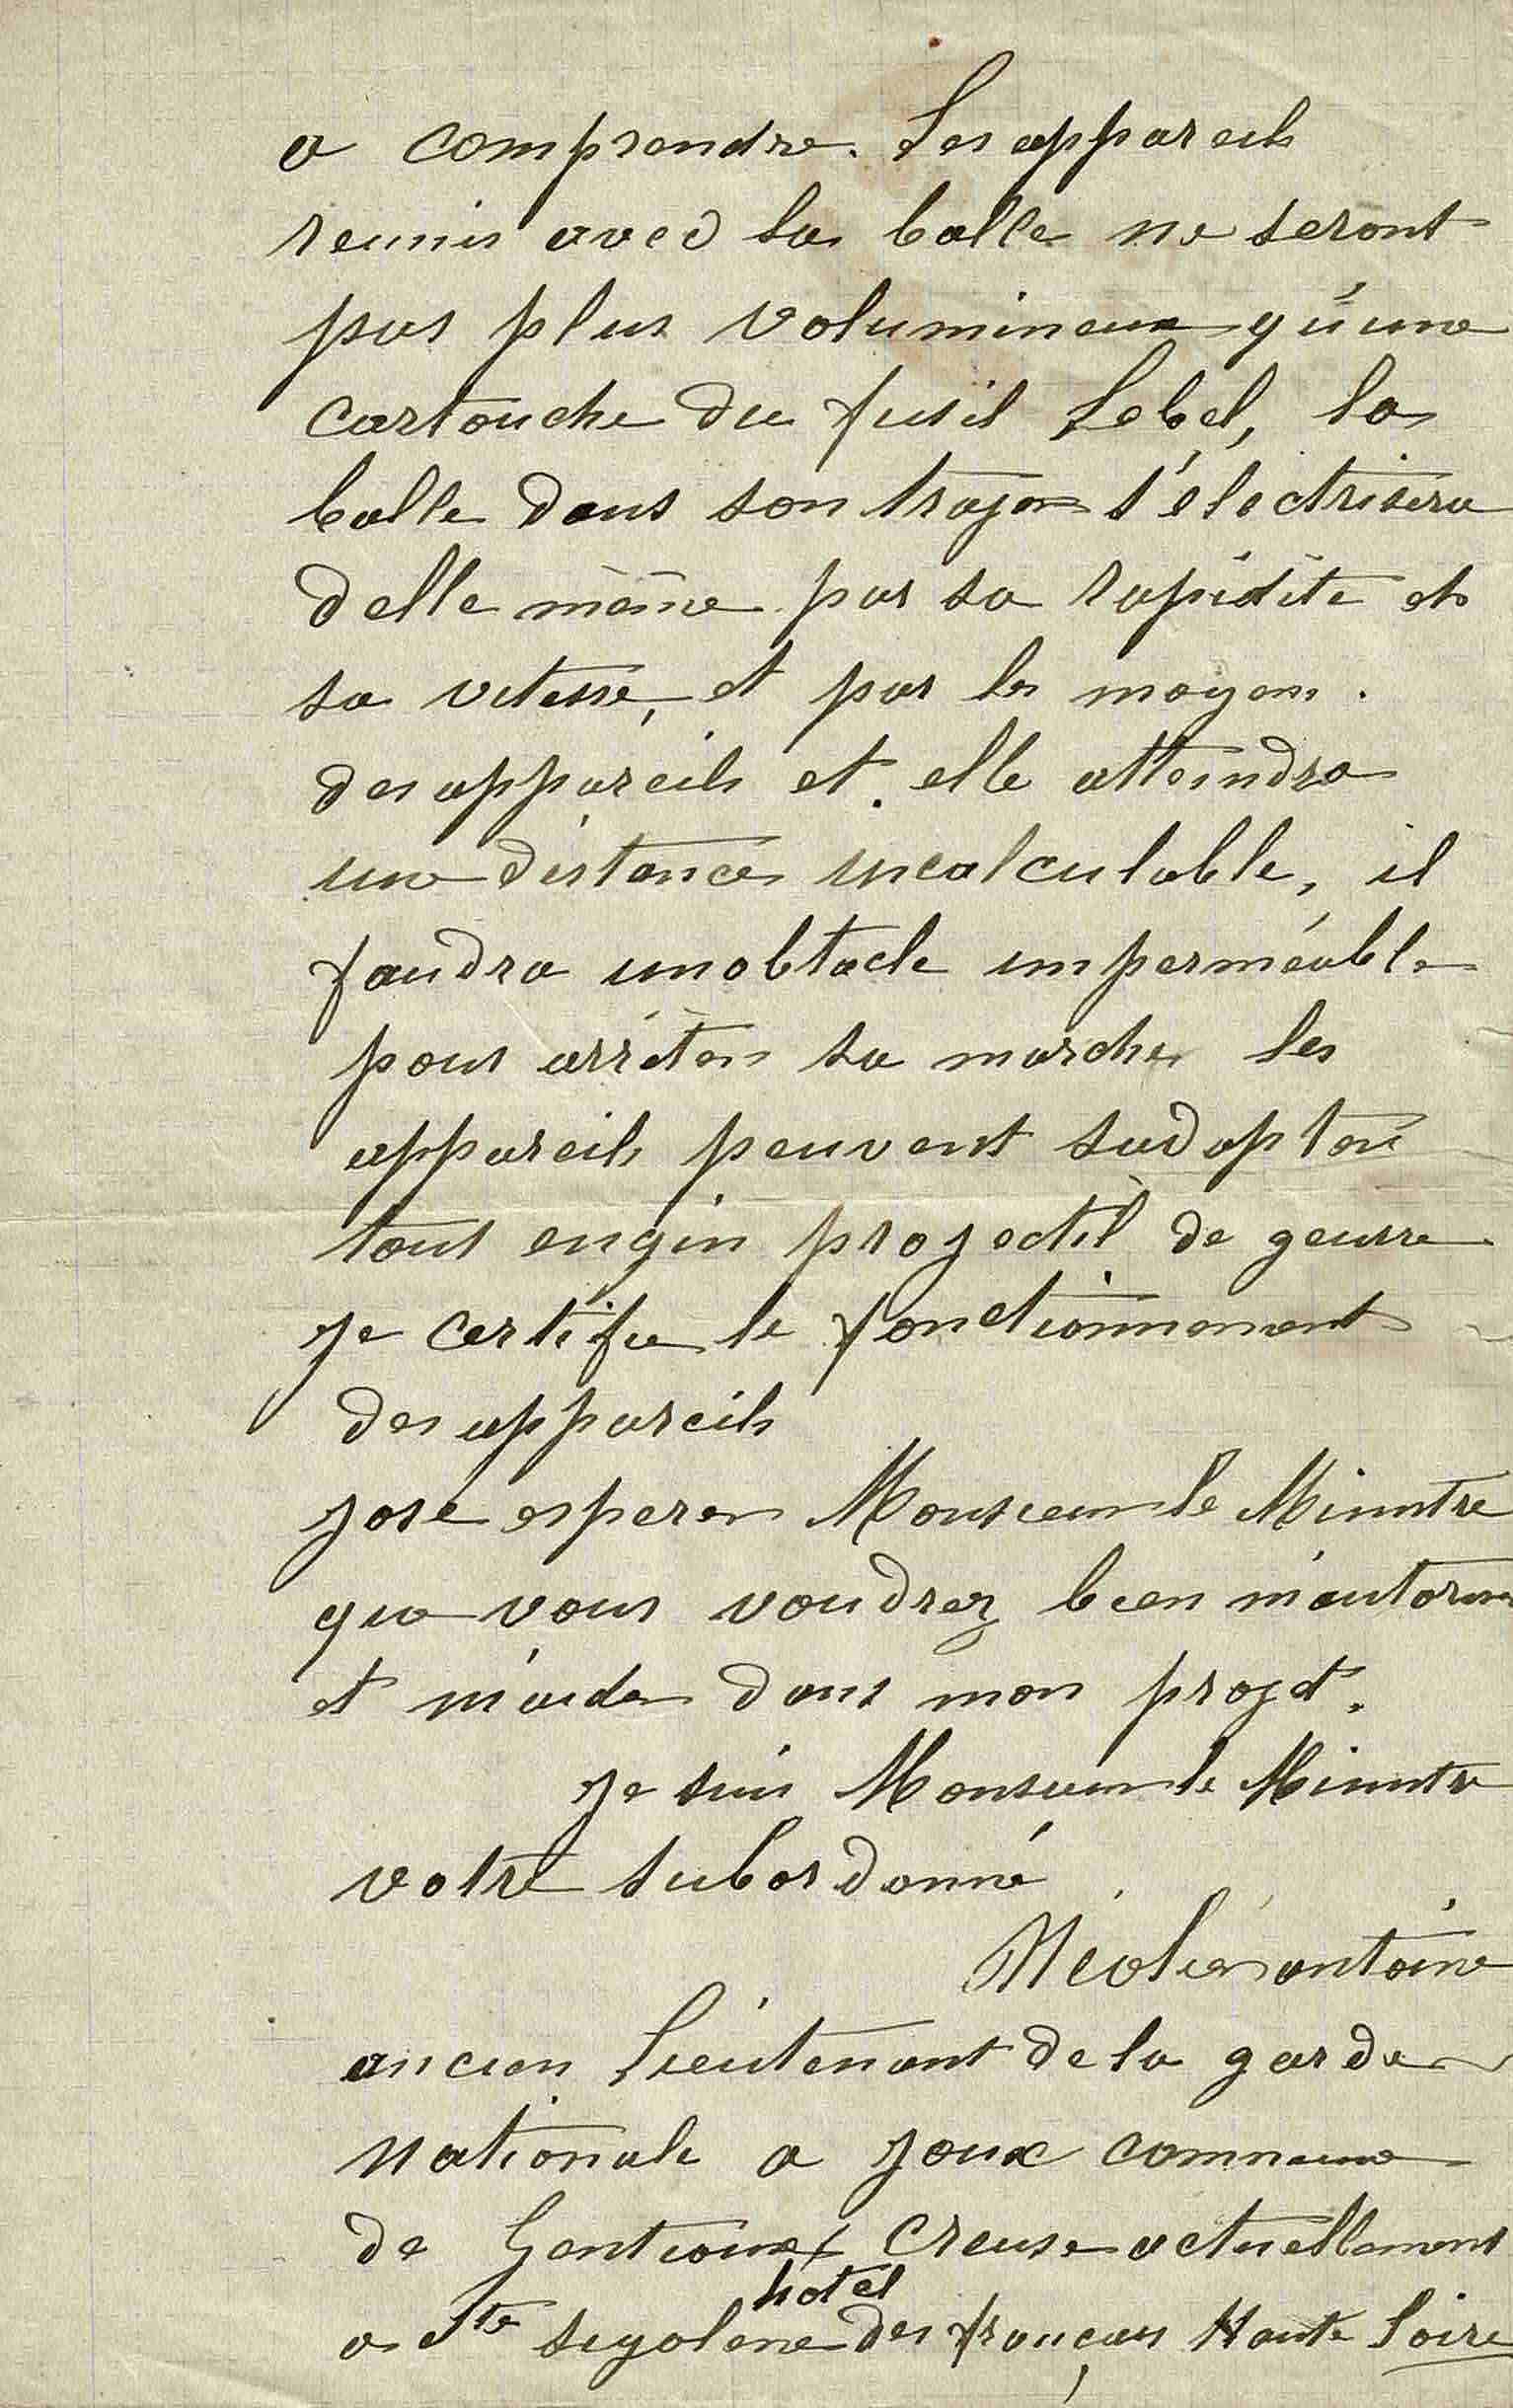 a comprendre. Les appareils
reunis avec la balle ne seront
pas plus volumineux qu'une
cartouche du fusil Lebel, la
balle dans son trajet s'électrisera
delle même par sa rapidité et
sa vitesse, et par les moyens.
des appareils et. elle atteindra
une distance incalculable, il
faudra un obtacle imperméable
pour arrêter sa marche les
appareils peuvent sadapter
tout engin projectil de geurre
je certifie le fonctionnement
des appareils
jose esperer Monsieur le Ministre
que vous voudrez bien m'autoriser
et m'aider dans mon projet.
je suis Monsieur le Ministre
votre subordonné
antoine
ancien Lieutenant de la garde
nationale a joux commune
de Gentioux Creuse actuellement
hotel
a Ste segolene des français Haute Loire